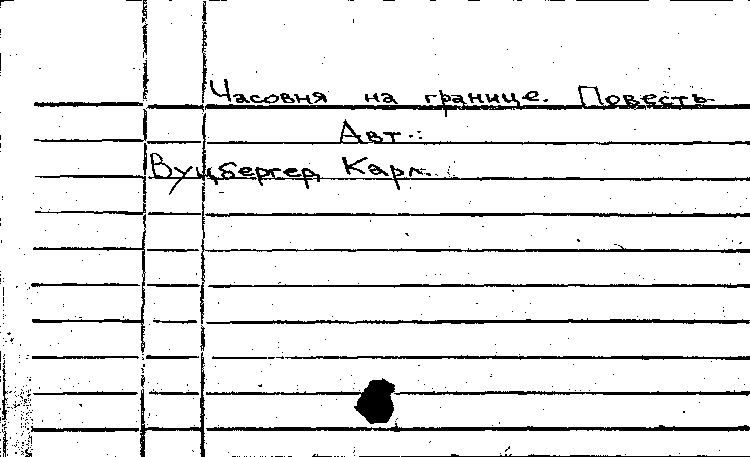 Часовня на границе. Повесть.
Авт.:
Вуцбергер, Карл.